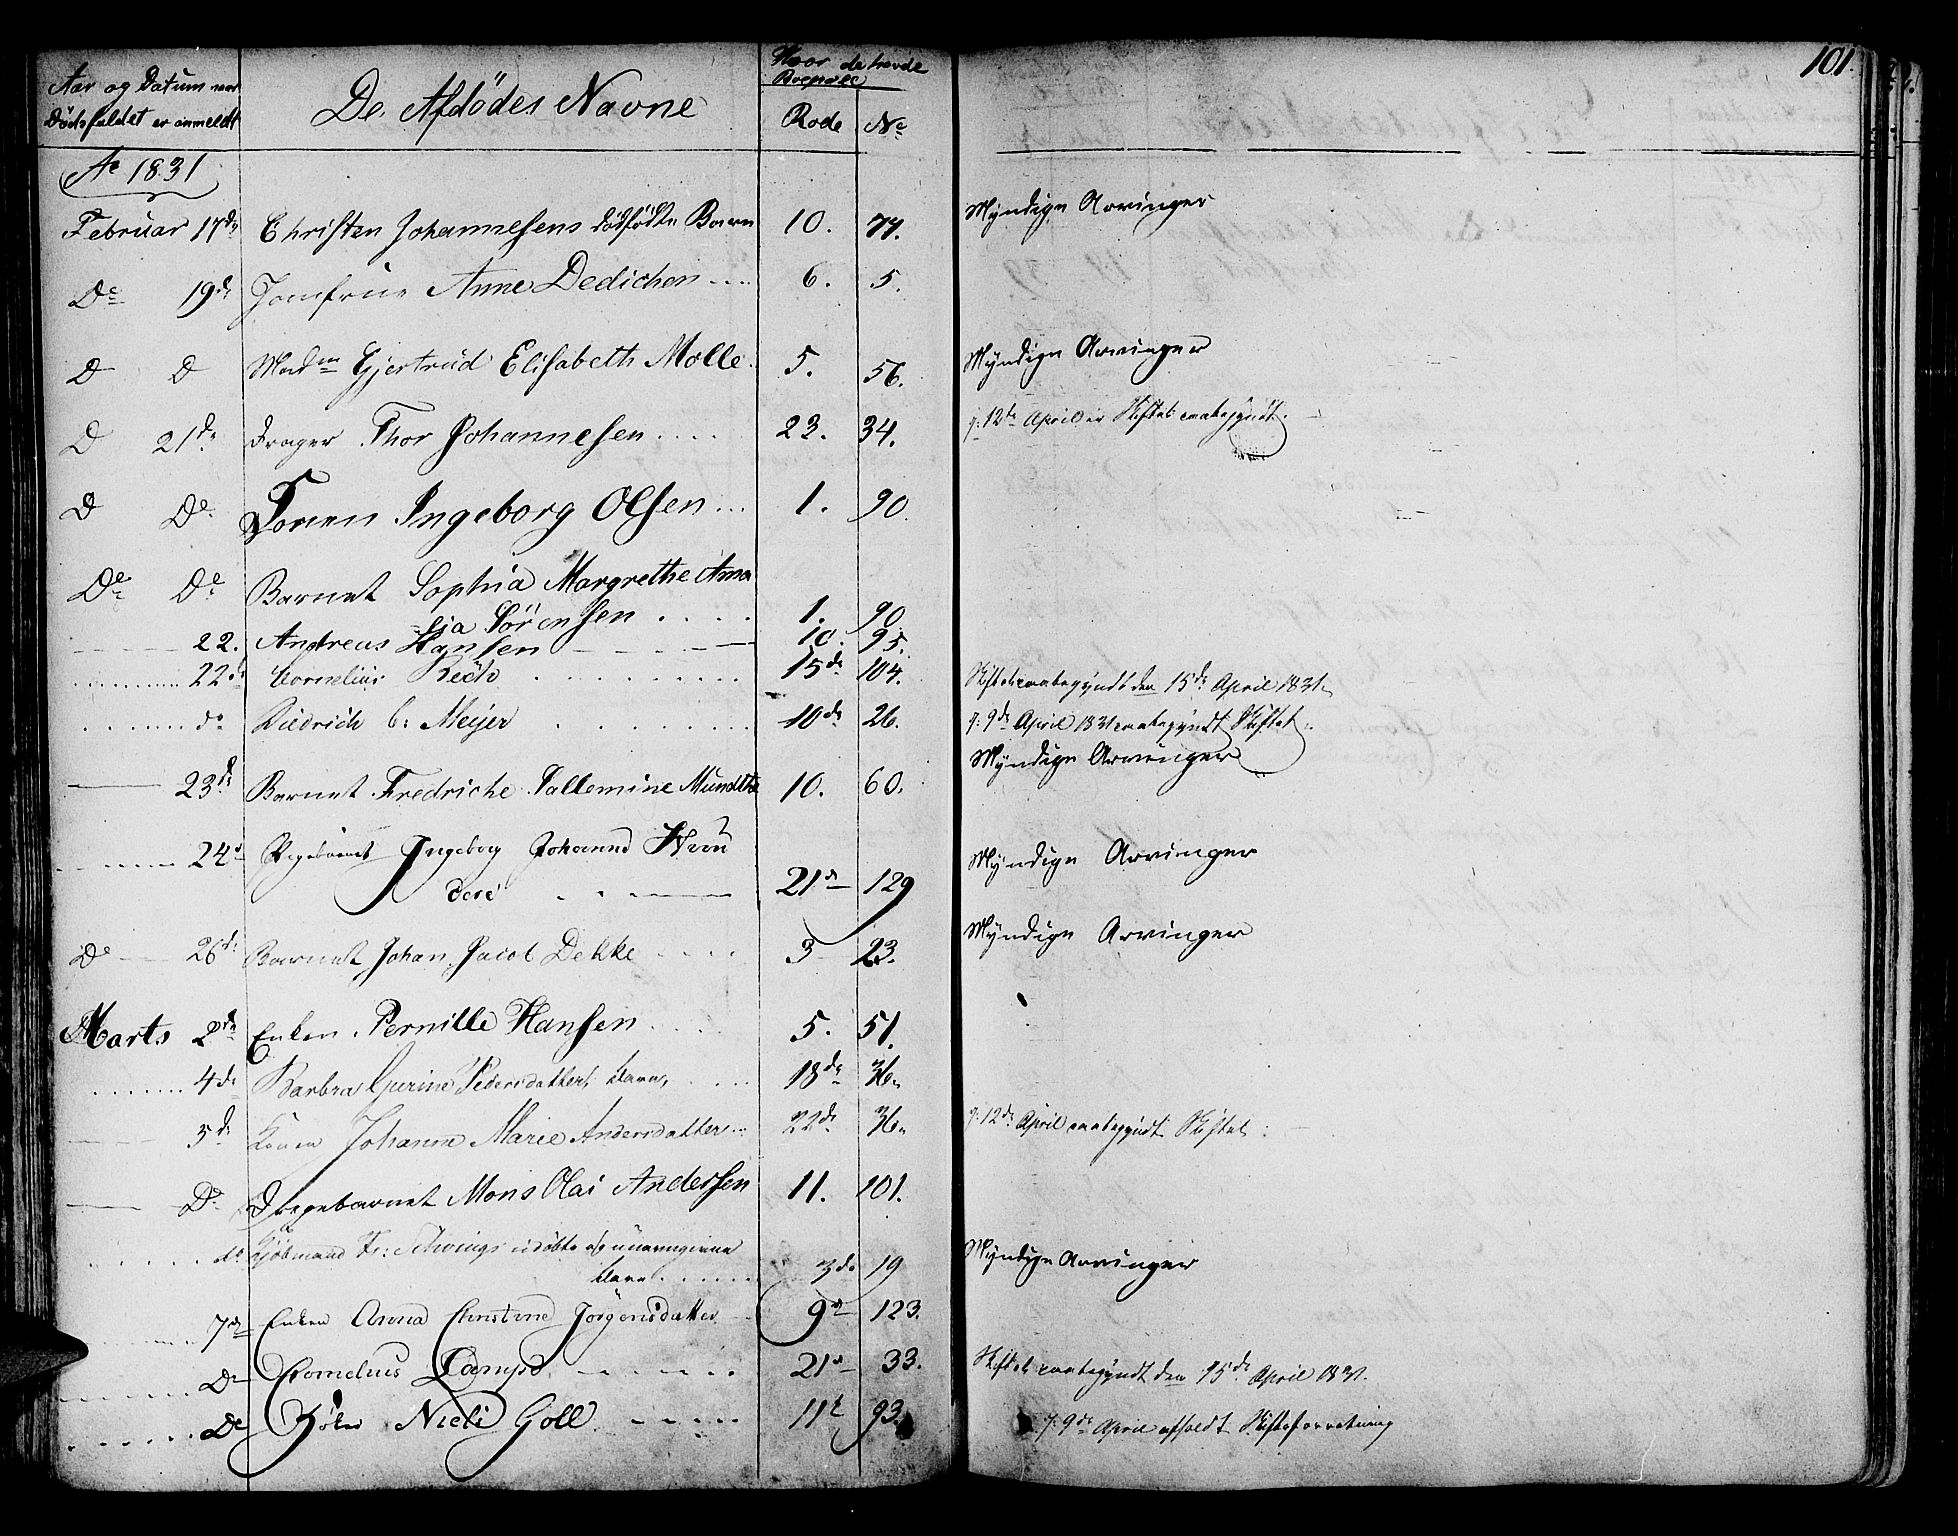 101.
Aar og Datum naar
Dødsfaldet er anmeldt
De Afdødes Navne
Hvor de havde
Boepæl
Rode
No
Ao 1831
Februar 17de Christen Johannesens dødfødte Barn 10. 77. Myndige Arvinger
Do 19de Jomfrue Anne Dedichen .... 6. 5.
D D Madm Gjertrud Elisabeth Molle. 5. 56. Myndige Arvinger
D 21de Drager Thor Johannesen .... 23. 34. 12de April er Skiftet paabegyndt.
D Do Ingeborg Olsen ... 1. 90.
Do Do Barnet Sophia Margrethe Ama
lia Sørensen .... 1. 90
22. Andreas Hansen 10. 95.
22de Cornelius 15de 104. Skiftet paabegyndt den 15de April 1831.
do Diedrich C: Meijer 10de 26. 9de April 1831 paabegyndt Skiftet.
23de Barnet Fredriche Vallemine Mundthe 10. 60. Myndige Arvinger
24de Pigebarnet Ingeborg Johanne
21de 129 Myndige Arvinger
Do 26de Barnet Johan Jacob Dekke .... 3 23. Myndige Arvinger
Marts 2de Enken Pernille Hansen .... 5. 51.
4de Barbra Gurine Pedersdatter, Barn, 18de 36.
5de Konen Johanne Marie Andersdatter ... 22de 36. 12de April paabegyndt Skiftet.
Do Drengebarnet Mons Olai Andersen 11. 101.
do Kjöbmand Fr: udøbte og unavngivne
Barn ..... 3de 19 Myndige Arvinger
7de Enken Anna Christine Jørgensdatter 9de 123.
Do Cornelius Lampe 21de 33. Skiftet paabegyndt den 15de April 1831.
Do Niels Goll 11te 93. 9de April afholdt Skifteforretning